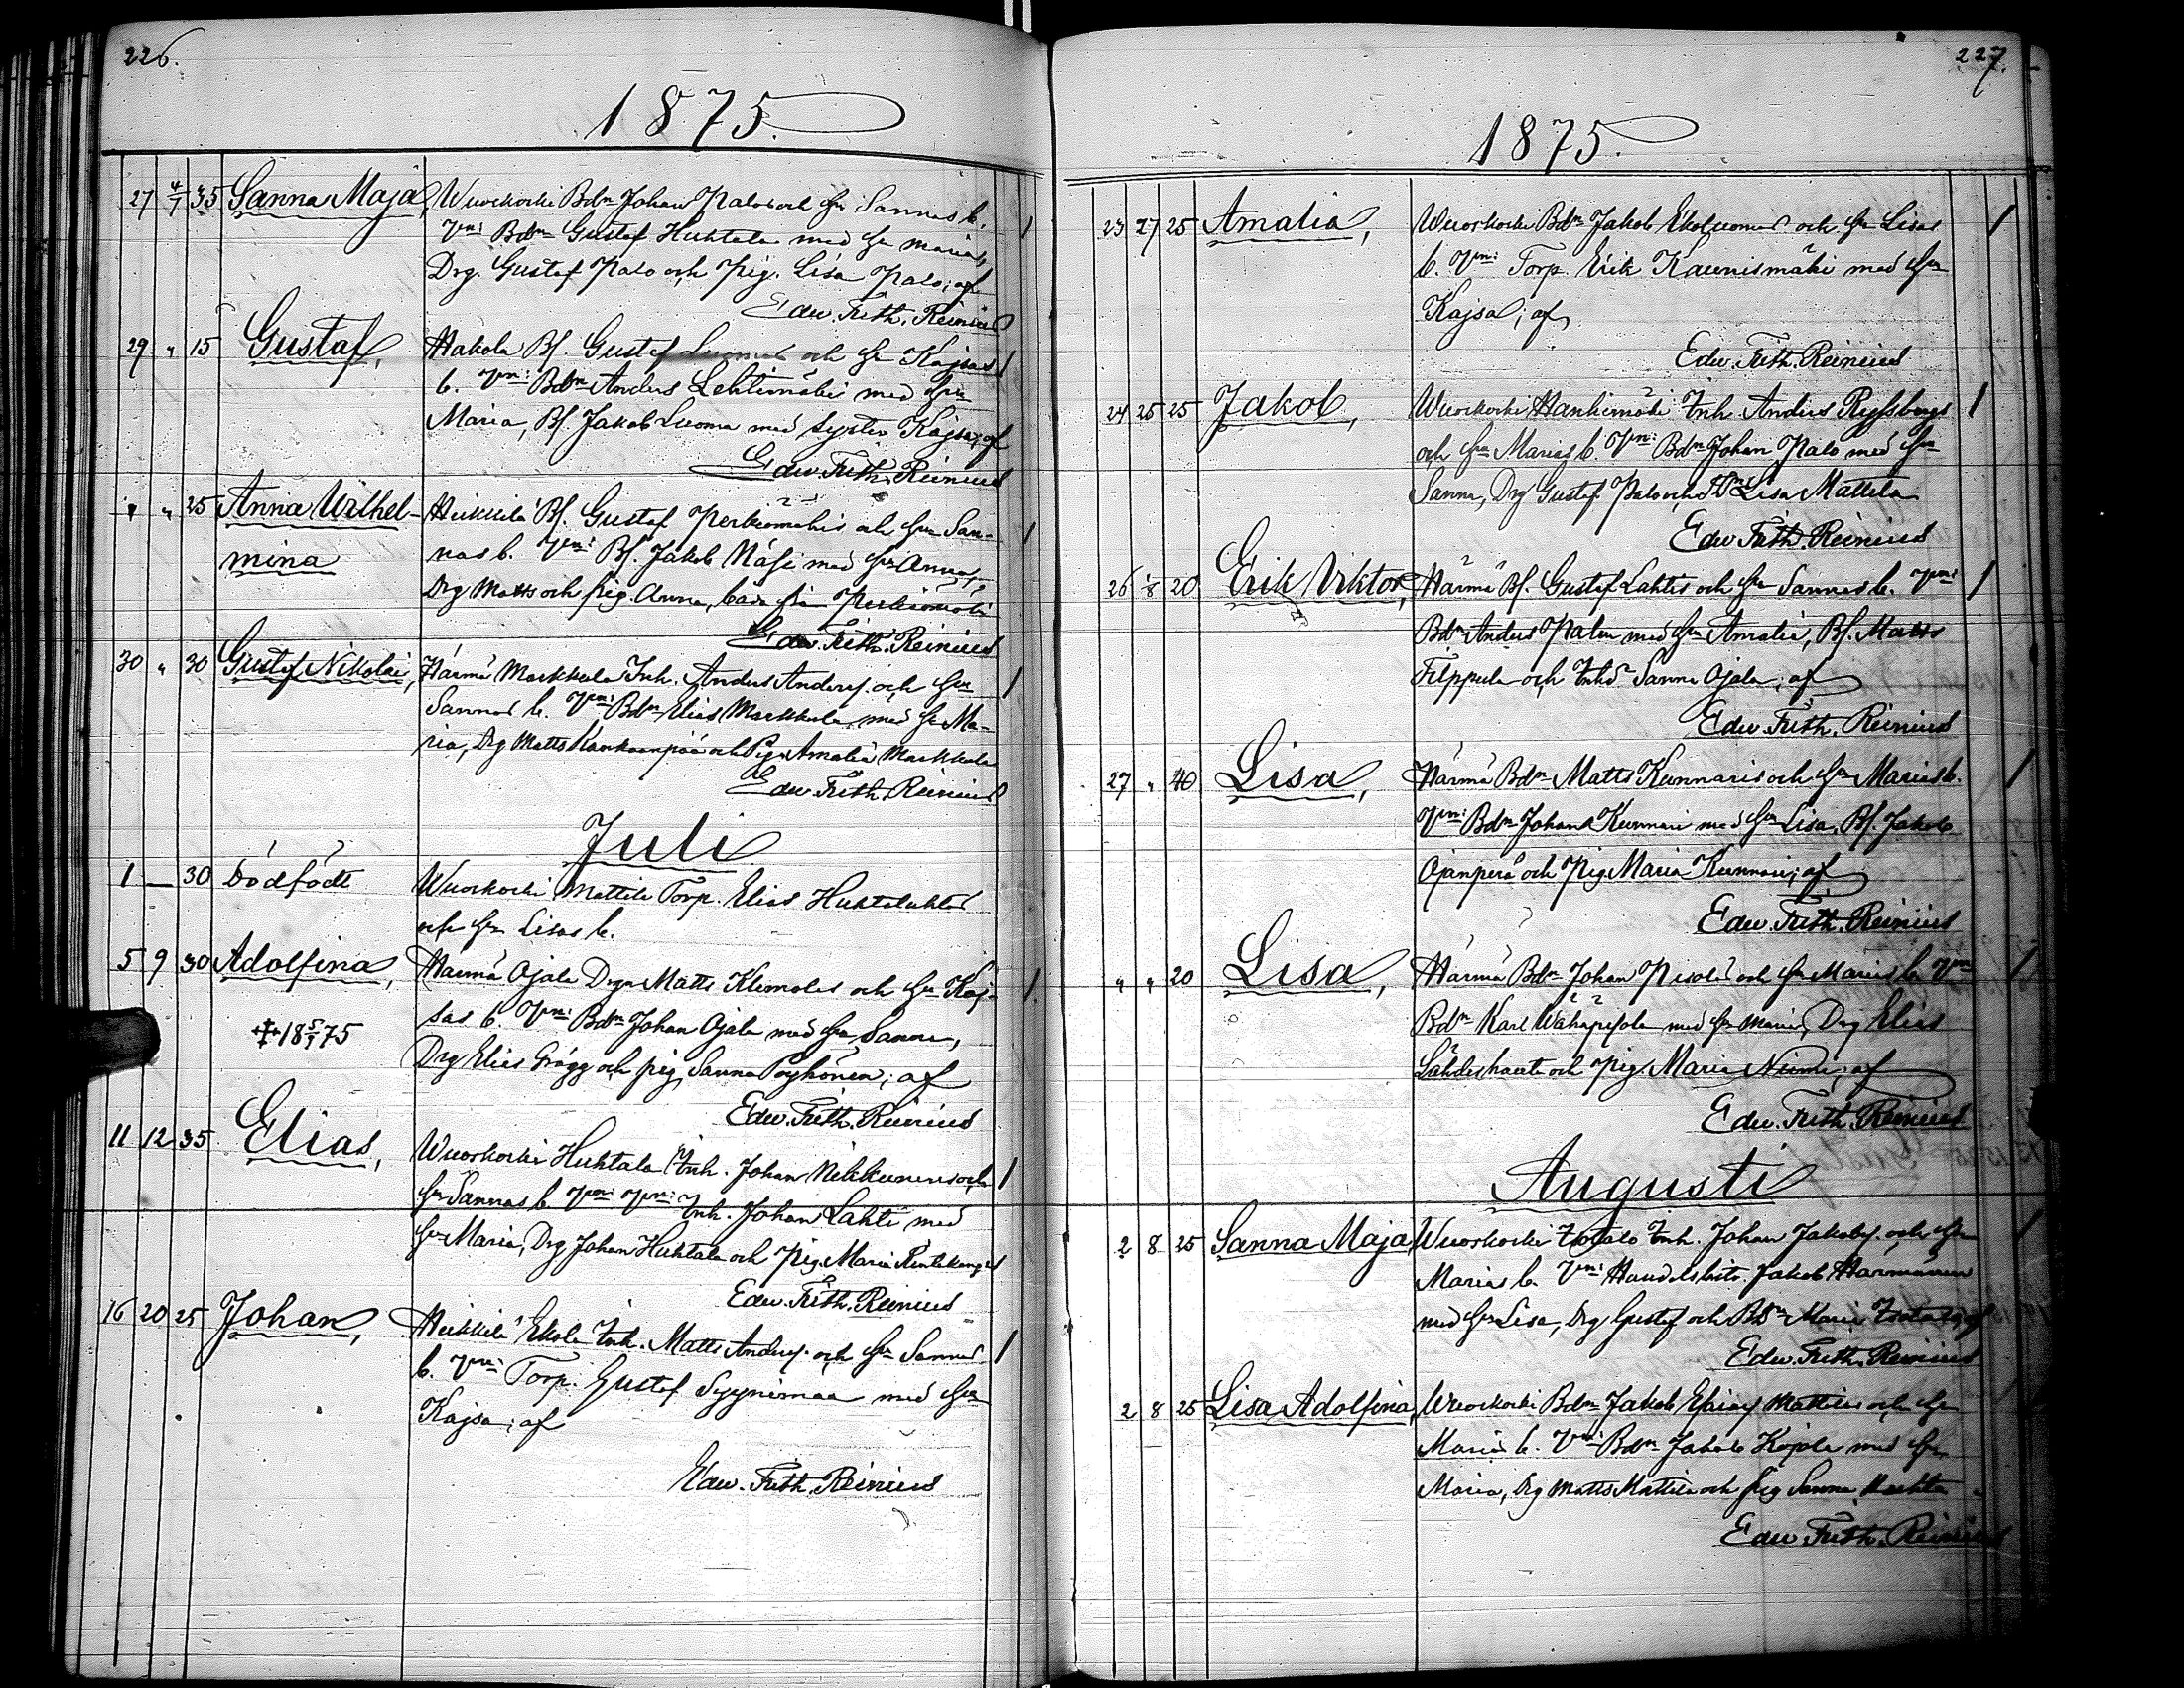 226.
1875.
27 4/7 35 Sanna Maja, Wuoskoski Bdn Johan Palos och hu Sannas b.
Vni: Bdn Gustaf Huhtala med hu Maria,
Drg. Gustaf Palo och Pig. Lisa Palo; af
Edw. Frith. Reinius
29 " 15 Gustaf, Hakola Bf. Gustaf Luomas och hu Kajsas
b. Vni: Bdn Anders Lehtimäki med hu
Maria, Bf. Jakob Luoma med syster Kajsa; af
Edw. Frith. Reinius
" " 25 Anna Wilhel- Heikkilä Bf. Gustaf Perkiömäkis och hu San-
mina nas b. Vni: Bf. Jakob Näsi med hu Anna,
Drg Matts och pig. Anna, båda från Perkiömäki
Edw. Frith. Reinius
30 " 30 Gustaf Nikolai, Härmä Markkula Inh. Anders Andersj. och hu
Sannas b. Vni: Bdn Elias Markkula med hu Ma-
ria, Drg Matts Kankaanpää och Pig. Amalia Markkula
Edw. Frith. Reinius
Juli
1 — 30 Dödfödt Wuoskoski Mattila Torp. Elias Huhtalahtis
och hu Lisas b.
5 9 30 Adolfina, Härmä Ojala Drgn Matts Klemolas och hu Kaj-
sas b. Vni: Bdn Johan Ojala med hu Sanna,
‡ 18 5/7 75
Drg Elias Frägg och pig Sanna Pöyhönen; af
Edw. Frith. Reinius
11 12 35 Elias, Wuoskoski Huhtala Inh. Johan Nikkunens och
hu Sannas b. Vni: Vni: Inh. Johan Lahti med
hu Maria, Drg Johan Huhtala och Pig. Maria Rintakangas
Edw. Frith. Reinius
16 20 25 Johan, Heikkilä Ekola Inh. Matts Andersj. och hu Sannas
b. Vni: Torp. Gustaf Syynimaa med hu
Kajsa; af
Edw. Frith. Reinius
227.
1875.
23 27 25 Amalia, Wuoskoski Bdn Jakob Ekoluomas och hu Lisas
b. Vni: Torp. Erik Kaunismäki med hu
Kajsa; af
Edw. Frith. Reinius
24 25 25 Jakob, Wuoskoski Hankimäki Inh. Anders Ryssbergs
och hu Marias b. Vni: Bdn Johan Palo med hu
Sanna, Drg Gustaf Palo och Lisa Mattila
Edw. Frith. Reinius
26 1/8 20 Erik Viktor, Härmä Bf. Gustaf Lahtis och hu Sannas b. Vni:
Bdn Anders Palm med hu Amalia, Bf. Matts
Filppula och Sanna Ojala; af
Edw. Frith. Reinius
27 " 40 Lisa, Härmä Bdn Matts Kunnaris och hu Marias b.
Vni: Bdn Johan Kunnari med hu Lisa, Bf. Jakob
Ojanperä och Pig. Maria Kunnari; af
Edw. Frith. Reinius
" " 20 Lisa, Härmä Bdn Johan Pesolas och hu Marias b. Vni
Bdn Karl Wähäpesola med hu Maria, Drg Elias
Lähdeshaute och Pig. Maria Niemi; af
Edw. Frith. Reinius
Augusti
2 8 25 Sanna Maja, Wuoskoski Isotalo Inh. Johan Jakobsj. och hu
Marias b. Vni: Jakob Härmänen
med hu Lisa, Drg Gustaf och Bdn Maria Isotalo; af
Edw. Frith. Reinius
2 8 25 Lisa Adolfina, Wuoskoski Bdn Jakob Mattilas och hu
Marias b. Vni: Bdn Jakob Kojola med hu
Maria, Drg Matts Mattila och pig Sanna
Edw. Frith. Reinius